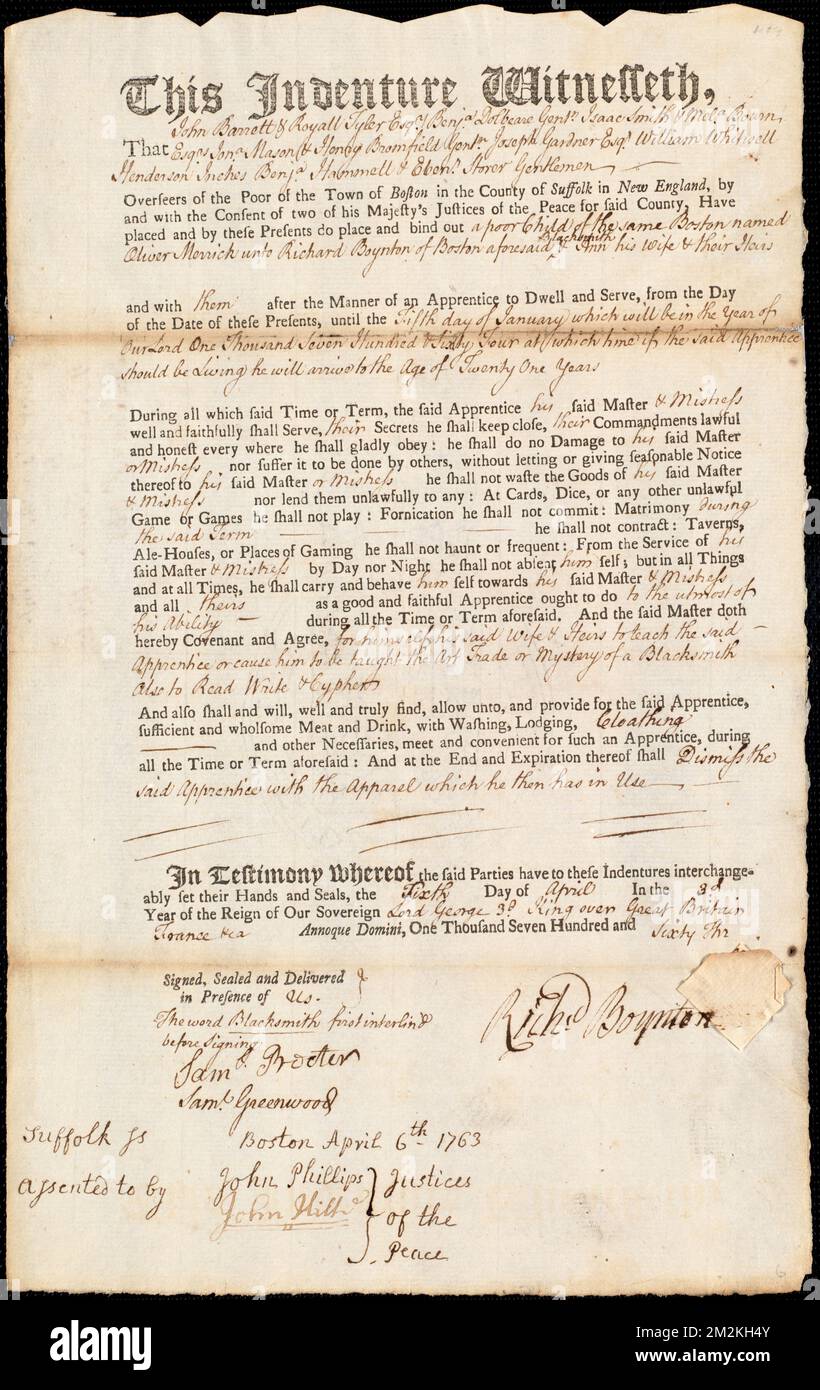 This Indenture Witnesseth,
John Barrett & Royall Tyler Esqrs Benja Dolbeare Gentn Isaac Smith & Melr Bourn
That Esqrs Jona Mason & Henry Bromfield Gentn Joseph Gardner Esqr William Whitwell
Henderson Inches Benja Hammett & Ebenr Storer Gentlemen
Overseers of the Poor of the Town of Boston in the County of Suffolk in New England, by
and with the Consent of two of his Majesty's Justices of the Peace for said County, Have
placed and by these Presents do place and bind out a poor Child of the same Boston named
Blacksmith
Oliver Merrick unto Richard Boynton of Boston aforesaid ^ & Ann his Wife & their Heirs
and with them after the Manner of an Apprentice to Dwell and Serve, from the Day
of the Date of these Presents, until the Fifth day of January which will be in the Year of
Our Lord One Thousand Seven Hundred & Sixty Four at which time if the said Apprentice
should be Living he will arrive to the Age of Twenty One Years
During all which said Time or Term, the said Apprentice his said Master & Mistress
well and faithfully shall Serve, their Secrets he shall keep close, their Commandments lawful
and honest every where he shall gladly obey: he shall do no Damage to his said Master
or Mistress nor suffer it to be done by others, without letting or giving seasonable Notice
thereof to his said Master or Mistress he shall not waste the Goods of his said Master
& Mistress nor lend them unlawfully to any: At Cards, Dice, or any other unlawful
Game or Games he shall not play: Fornication he shall not commit: Matrimony during
the said Term he shall not contract: Taverns,
Ale-Houses, or Places of Gaming he shall not haunt or frequent: From the Service of his
said Master & Mistress by Day nor Night he shall not absent him self; but in all Things
and at all Times, he shall carry and behave him self towards his said Master & Mistress
and all theirs as a good and faithful Apprentice ought to do to the utmost of
his Ability during all the Time or Term aforesaid. And the said Master doth
hereby Covenant and Agree, for himself his said Wife & Heirs to teach the said
Apprentice or cause him to be taught the Art Trade or Mystery of a Blacksmith
Also to Read Write & Cypher
And also shall and will, well and truly find, allow unto, and provide for the said Apprentice,
sufficient and wholsome Meat and Drink, with Washing, Lodging, Cloathing
and other Necessaries, meet and convenient for such an Apprentice, during
all the Time or Term aforesaid: And at the End and Expiration thereof shall Dismiss the
said Apprentice with the Apparel which he then has in Use
In Testimony Whereof, the said Parties have to these Indentures interchange-
ably set their Hands and Seals, the Sixth Day of April In the 3d
Year of the Reign of Our Sovereign Lord George 3d King over Great Britain
France &ca Annoque Domini, One Thousand Seven Hundred and Sixty Thr
Signed, Sealed and Delivered
in Presence of Us.
The word Blacksmith first interlin'd
before Signing
Richd Boynton
Saml Procter
Saml Greenwood
Suffolk ss Boston April 6th 1763
Assented to by John Phillips Justices
John Hill of the
Peace
alamy
Image ID: 2M2KH4Y
www.alamy.com